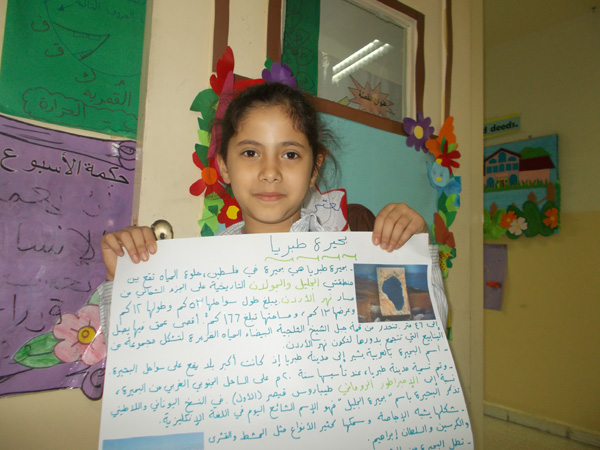 القمرية
الحرارة
حكمة الأسبوع
الإنسا
deeds.
بحيرة طبريا
- بحيرة طبريا هي بحيرة في فلسطين، حلوة المياه تقع بين
منطقتي الجليل والجولان التاريخية على الجزء الشمالي من
مسار نهر الأردن. يبلغ طول سواحلها ٥٣ كم وطولها ٢١ كم
وعرضها ١٣ كم، ومساحتها تبلغ ١٦٦ كم². أقصى عمق فيها يصل
إلى ٤٦ متر. تنحدر من قمة جبل الشيخ الثلجية البيضاء المياه الغزيرة لتشكل مجموعة من
الينابيع التي تتجمع بدورها لتكون نهر الأردن.
- اسم البحيرة بالعربية يشير إلى مدينة طبريا إذ كانت أكبر بلد يقع على سواحل البحيرة
وتم تسمية مدينة طبرياء عند تأسيسها سنة ٢٠ م على الساحل الجنوبي الغربي من البحيرة،
نسبة إلى الإمبراطور الروماني طيباريوس قيصر (الأول). في النسخ اليوناني واللاطيني
تذكر البحيرة باسم "بحيرة الجليل" وهو الإسم الشائع اليوم في اللغة الإنكليزية.
- شكلها يشبه الإجاصة وسمكها كثير الأنواع مثل المشط والفترى
والكرسين والسلطان إبراهيم.
- تطل البحيرة من